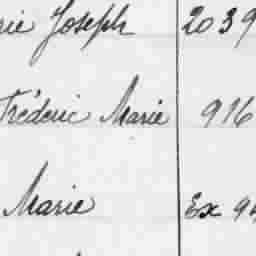 rie Joseph 2039
Fréderic Marie 916
Marie Ex 94